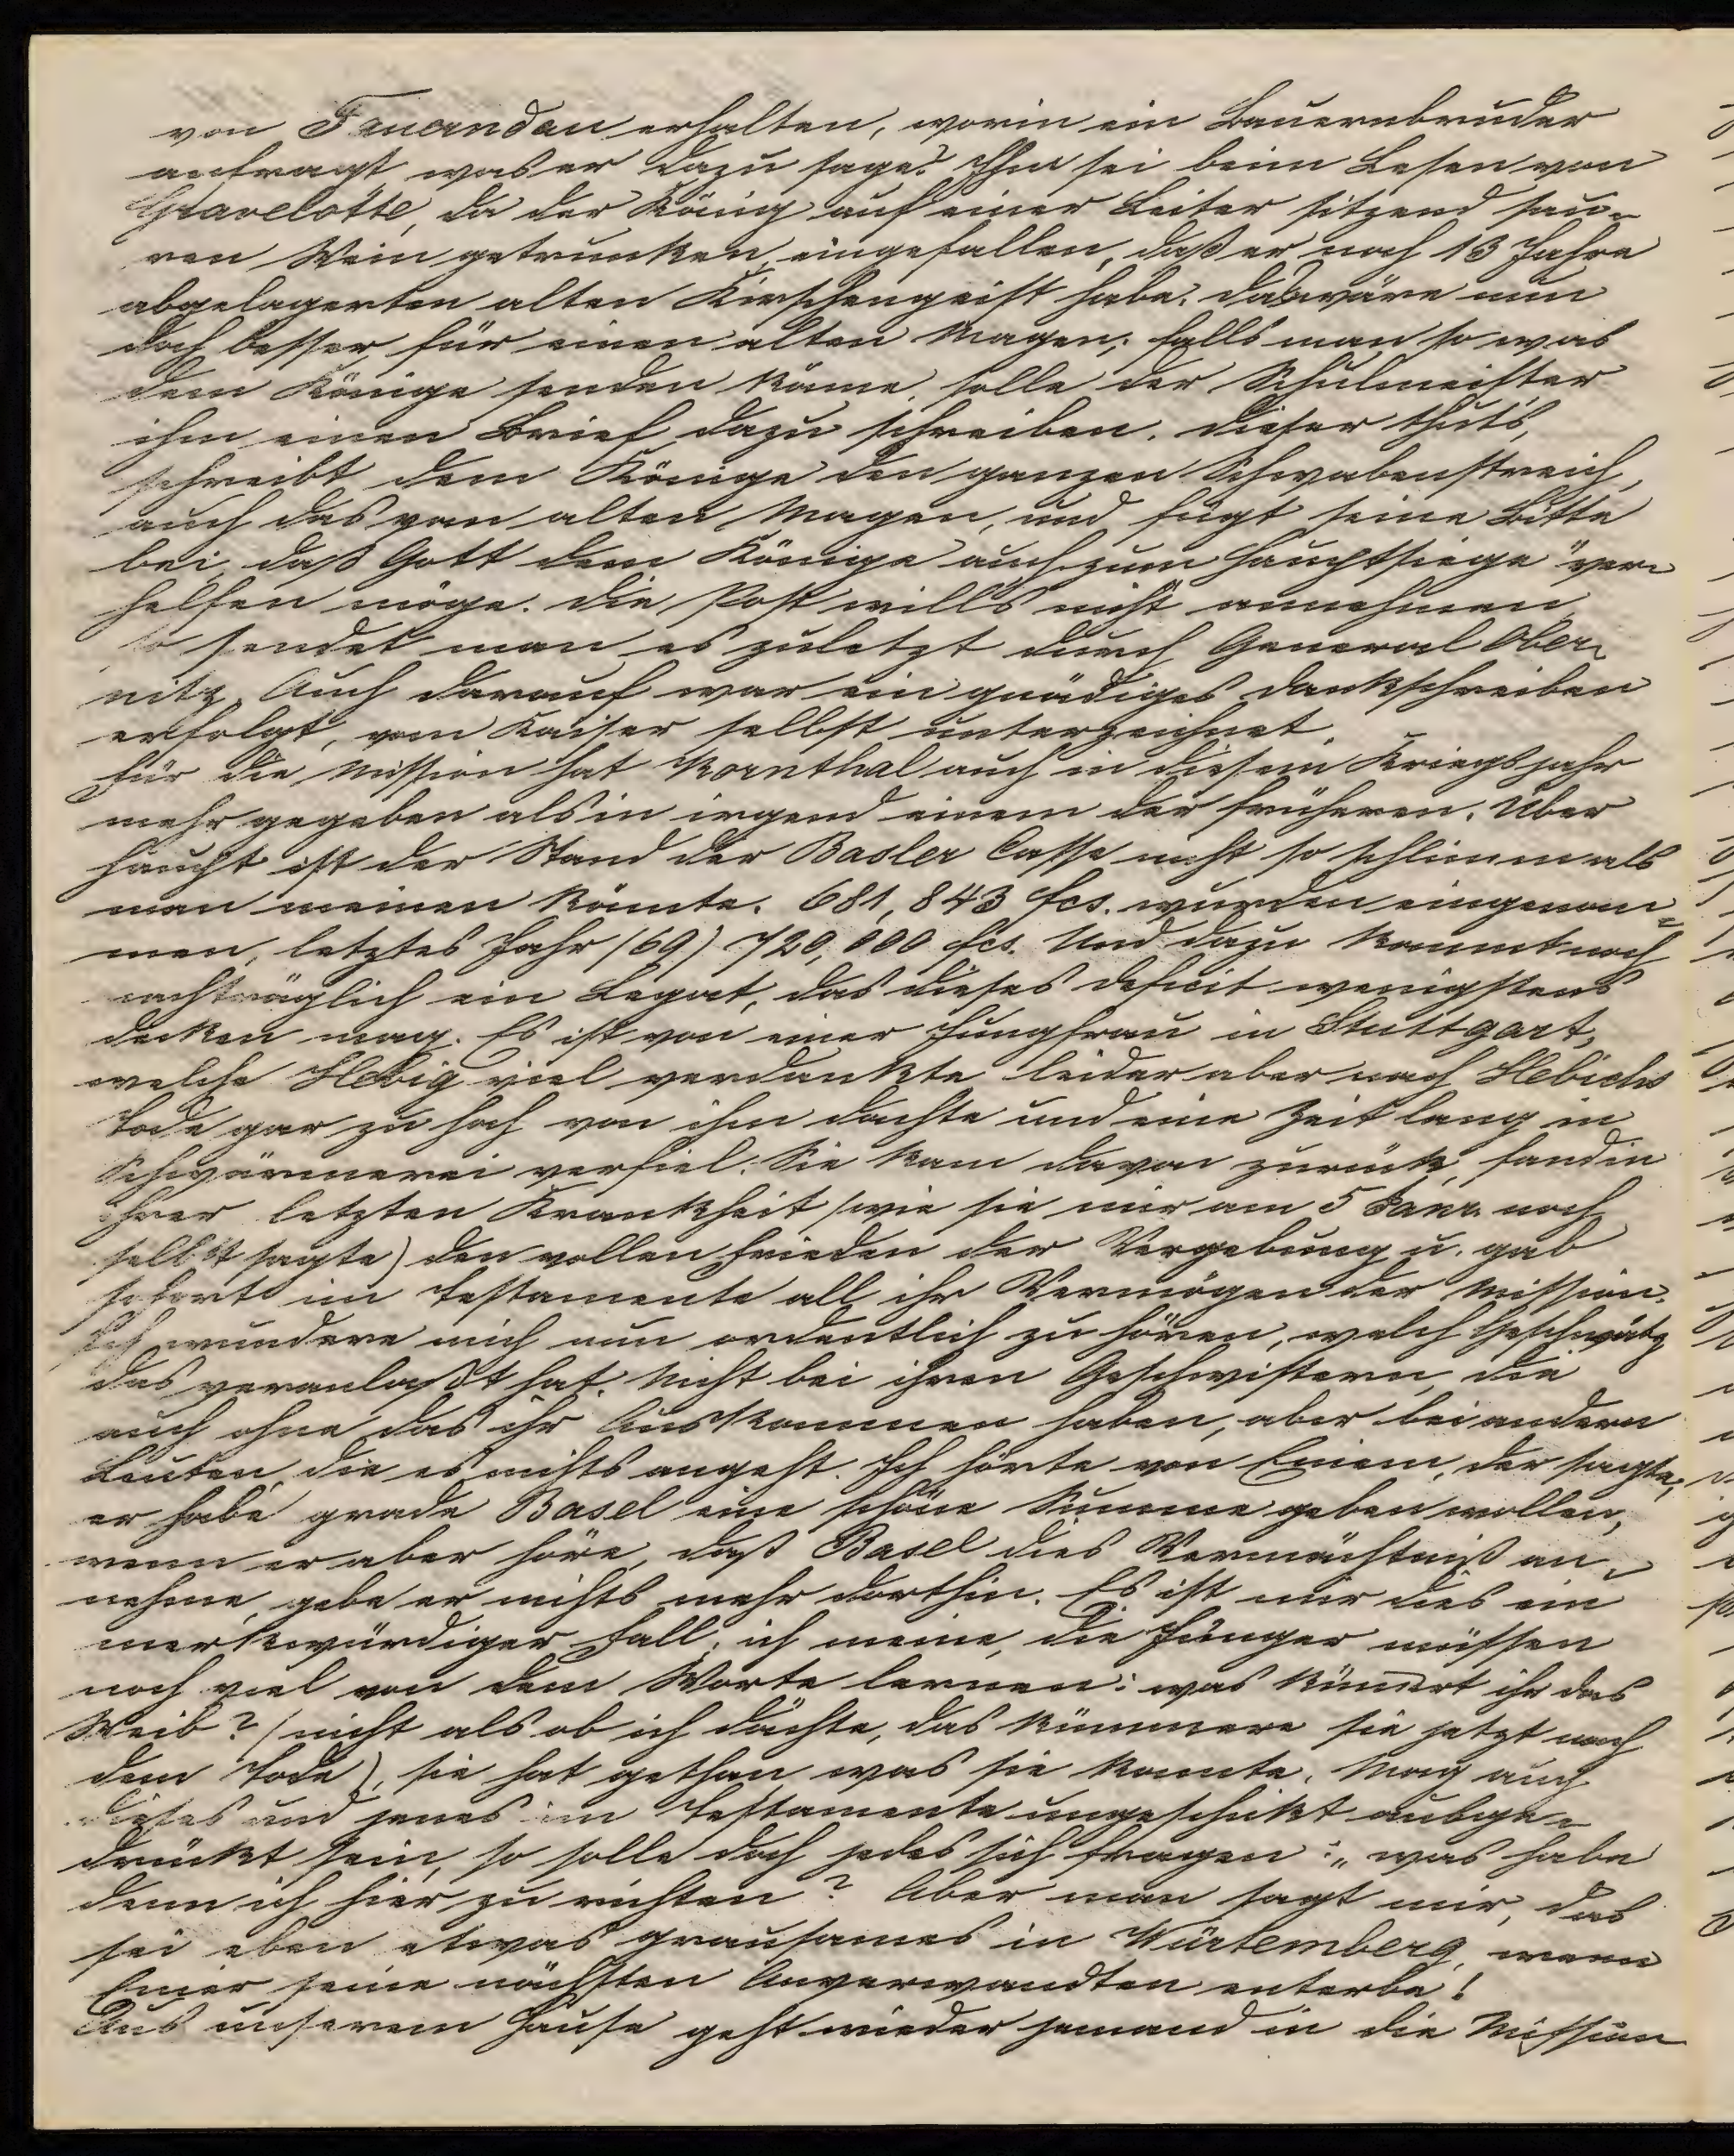 von Fauerndau erhalten, worin ein Bauernbruder
anfragt was er dazu sage? Ihm sei beim Lesen von
Gravelotte, da der König auf einer Leiter sitzend sau-
ren Wein getrunken, eingefallen, daß er noch 13 Jahre
abgelagerten alten Kirschengeist habe. das wäre nun
doch besser für einen alten Magen; falls man so was
dem Könige senden könne, solle der Schulmeister
ihm einen Brief dazu schreiben. Dieser thuts,
schreibt dem Könige den ganzen Schwabenstreich,
auch das vom alten Magen, und fügt seine Bitte
bei daß Gott dem Könige auch zum Hauptsiege ver-
helfen möge. Die Post wills nicht annehmen
so sendet man es zuletzt durch General Ober-
nitz. Auch darauf war ein gnädiges Dankschreiben
erfolgt, vom Kaiser selbst unterzeichnet.
Für die Mission hat Kornthal auch in diesem Kriegsjahr
mehr gegeben als in irgend einem der früheren. Über
haupt ist der Stand der Basler Casse nicht so schlimm als
man meinen könnte. 681,843 fcs. wurden eingenom-
men, letztes Jahr (69) 720,000 fcs. Und dazu kommt noch
nachträglich ein Legat, das dieses deficit wenigstens
decken mag. Es ist von einer Jungfrau in Stuttgart,
welche Hebig viel verdankte leider aber nach Hebichs
Tode gar zu hoch von ihm dachte und eine Zeit lang in
Schwärmerei verfiel. Sie kam davon zurück, fand in
ihrer letzten Krankheit (wie sie mir am 5 Janr. noch
selbst sagte) den vollen Frieden der Vergebung u. gab
sofort im Testamente all ihr Vermögen der Mission.
Ich wundere mich nun ordentlich zu hören, welch Geschwätz
das veranlaßt hat. Nicht bei ihren Geschwistern, die
auch ohne das ihr Auskommen haben, aber bei andern
Leuten, die es nichts angeht. Ich hörte von Einem, der sagte,
er habe grade Basel eine schöne Summe geben wollen,
wenn er aber höre, daß Basel dies Vermächtniß an-
nehme, gebe er nichts mehr dorthin. Es ist mir dies ein
merkwürdiger Fall; ich meine, die Jünger müssen
noch viel von dem Worte lernen: was kümmert ihr das
Weib? (nicht als ob ich dächte, das kümmere sie jetzt nach
dem Tode), sie hat gethan was sie konnte. Mag auch
dieses und jenes im Testamente ungeschickt ausge-
drückt sein, so solle doch jedes sich fragen: „was habe
denn ich hier zu richten? Aber man sagt mir, das
sei eben etwas grausames in Würtemberg, wenn
Einer seine nächsten Anverwandten enterbe!
Aus unserem Hause geht wieder jemand in die Mission